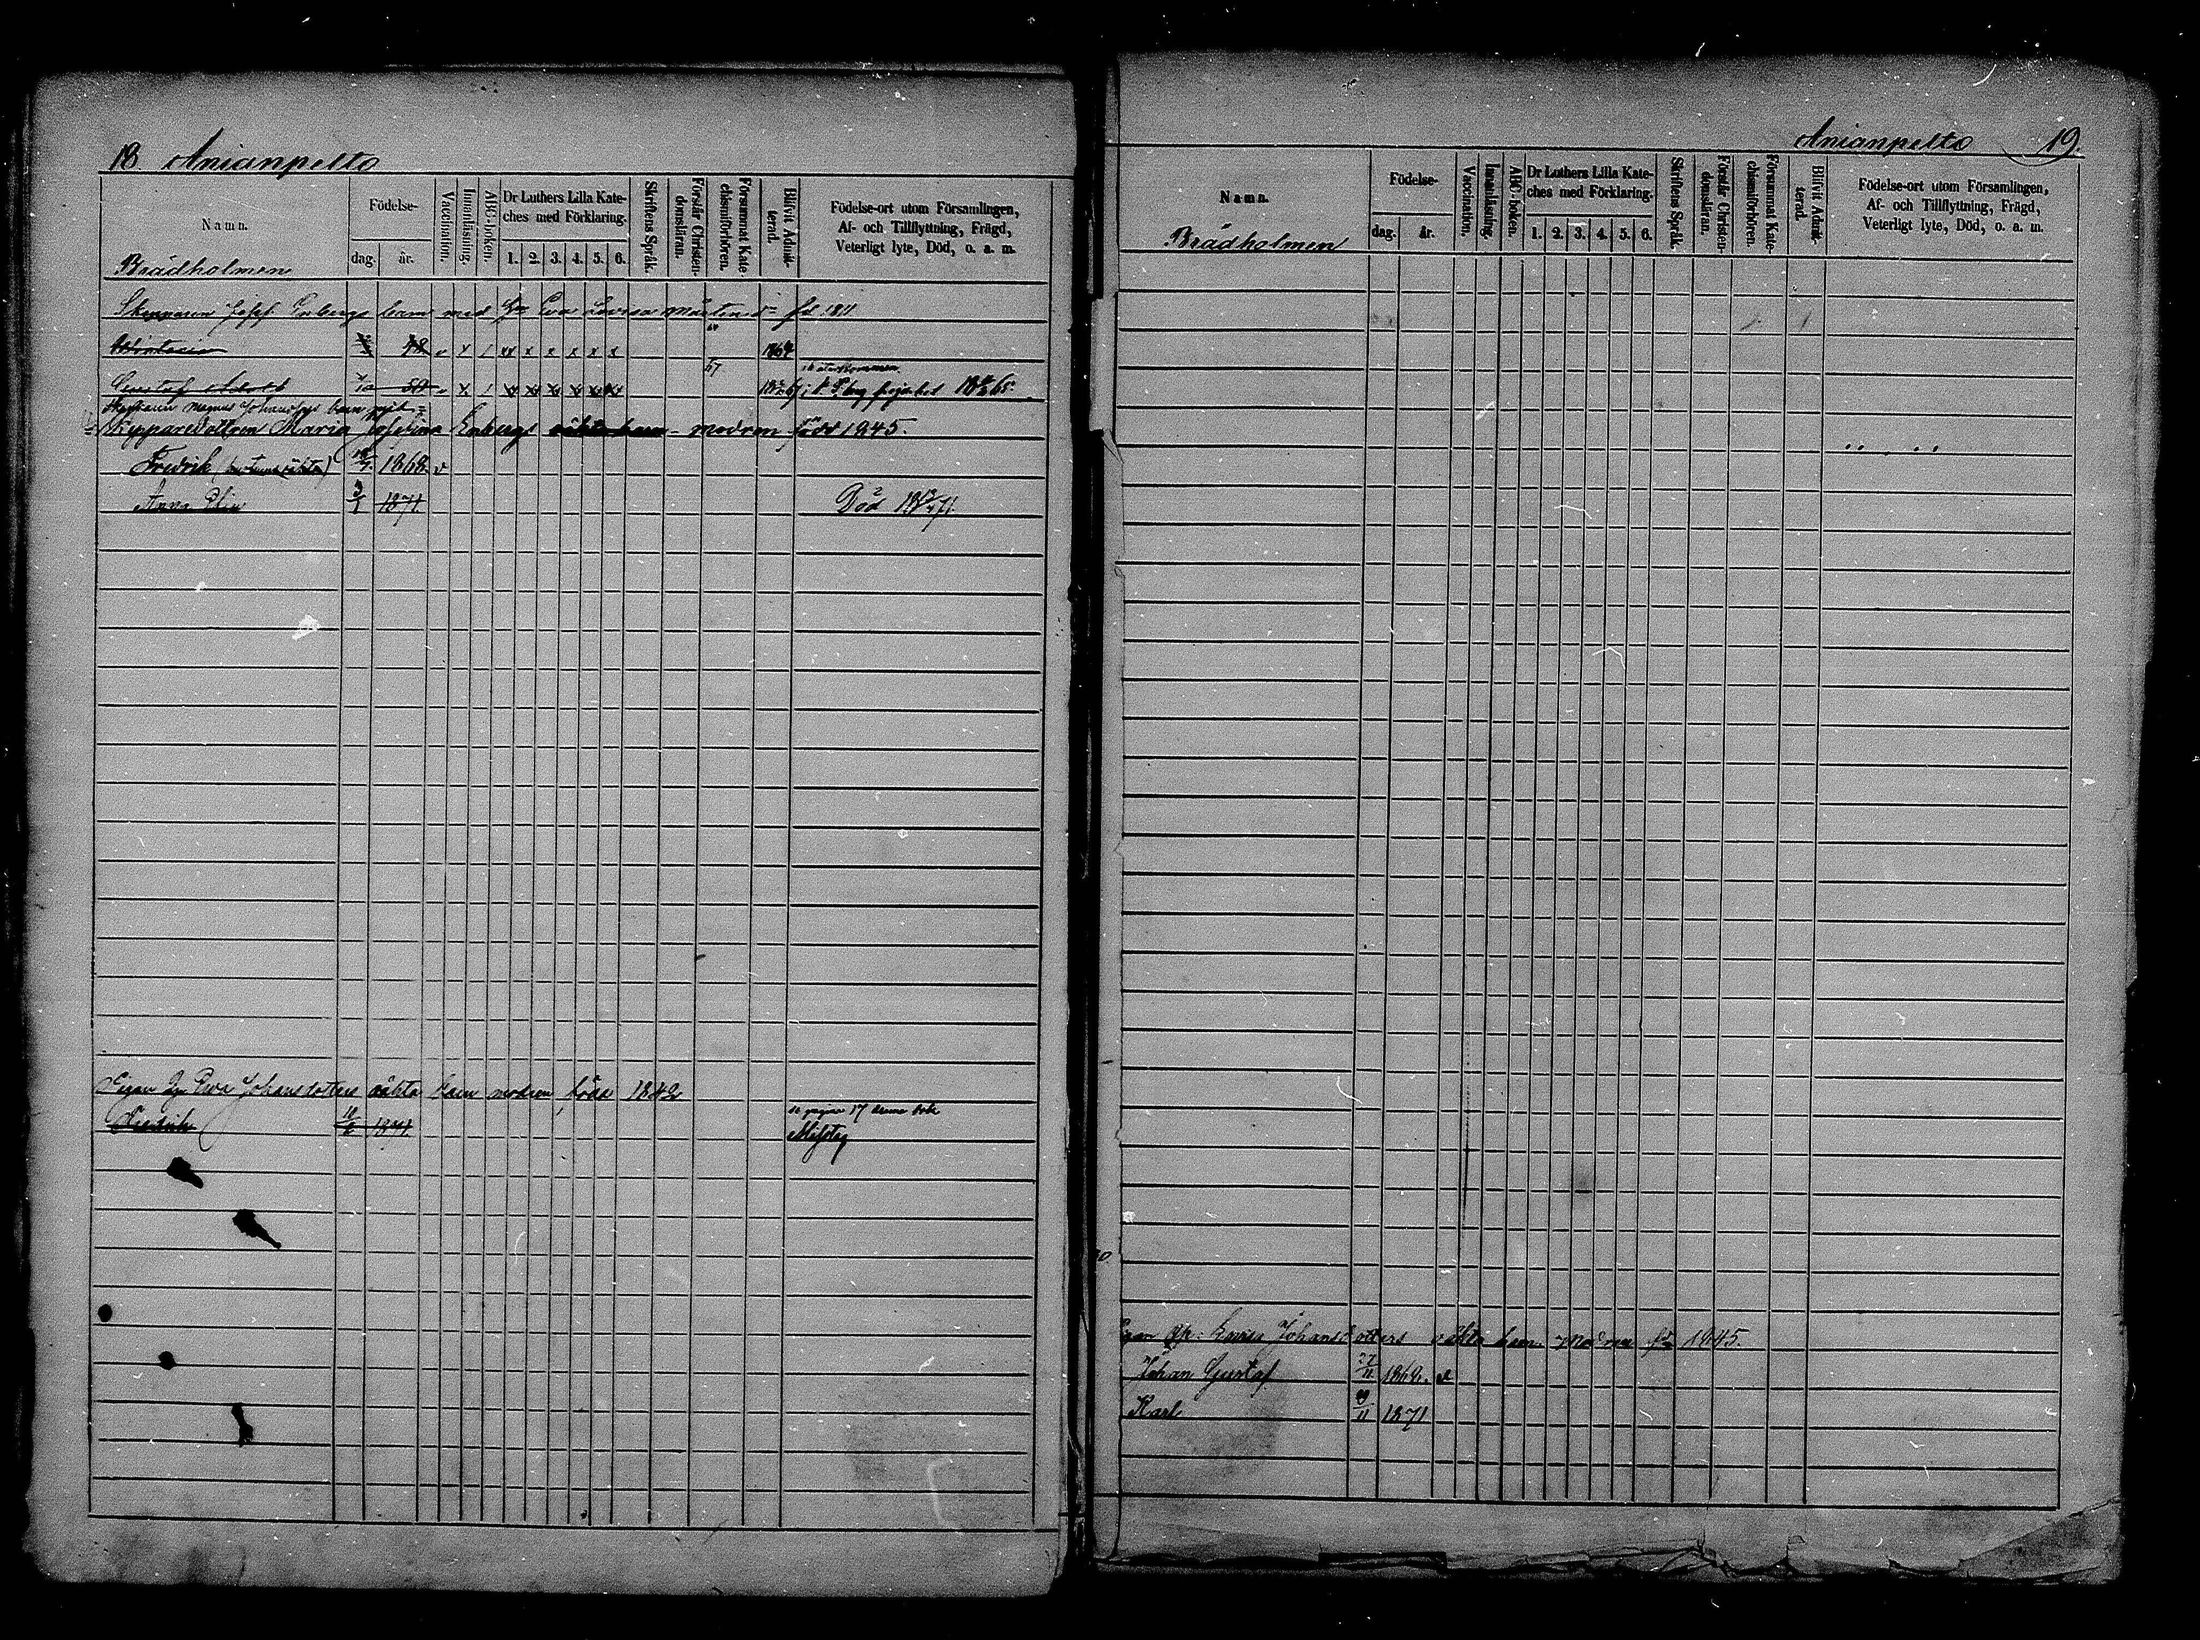 18. Anianpelto
Namn.
Födelse-
dag.
år.
Vaccination.
Innanläsning.
ABC-boken.
Dr Luthers Lilla Kate-
ches med Förklaring.
1. 2. 3. 4. 5. 6.
Skriftens Språk.
Förstår Christen-
domsläran.
Försummat Kate-
chismiförhören.
Blifvit Admit-
terad.
Födelse-ort utom Församlingen,
Af- och Tillflyttning, Frägd,
Veterligt lyte, Död, o. a. m.
Brädholmen
Skepparen Enbergs barn med Eva Lovisa fd 1811
48 v x 1 xx x x x x x 1864
Gustaf v x 1 xx xx xx xx xx xx
Magnus Johanssons barn
Skepparedottren Maria Josefina Enbergs oäkta barn - modren född 1845.
Fredrik 1868 v
Anna 3/1 1871. Död
Eva Johansdotters oäkta barn modren född 1842
Fredrik 10/6 1871.
pagina 17 denna bok
Anianpelto 19.
Namn.
Födelse-
dag.
år.
Vaccination.
Innanläsning.
ABC-boken.
Dr Luthers Lilla Kate-
ches med Förklaring.
1. 2. 3. 4. 5. 6.
Skriftens Språk.
Förstår Christen-
domsläran.
Försummat Kate-
chismiförhören.
Blifvit Admit-
terad.
Födelse-ort utom Församlingen,
Af- och Tillflyttning, Frägd,
Veterligt lyte, Död, o. a. m.
Brädholmen
Lovisa Johansdotters oäkta barn. Modren fd 1845.
Johan Gustaf 22/11 1868. v
Karl 11 1871